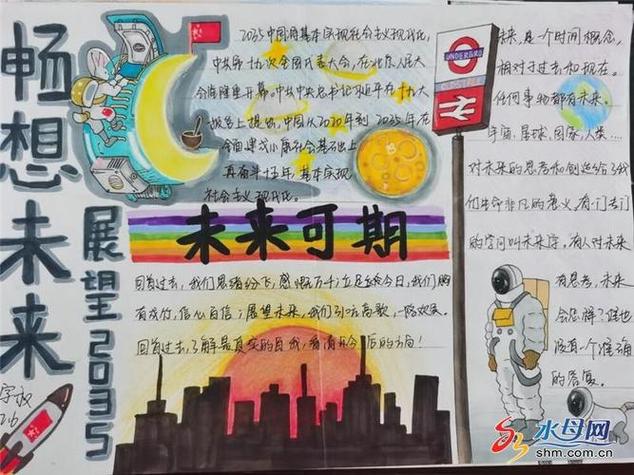 畅想未来
展望2035
2035中国将基本实现社会主义现代化，
中共第十九次全国代表大会，在北京人民大
会堂隆重开幕。中共中央总书记习近平在十九大
报告上提出，中国从2020年到2035年在
全面建成小康社会基础上
再奋斗十五年，基本实现
社会主义现代化。
UNDERGRO
未来，是一个时间概念，
相对于过去和现在。
任何事物都有未来。
宇宙、星球、国家、人类……
对未来的思考和创造给了我
们生命非凡的意义。有一门专门
的学问叫未来学，有人对未来
有思考，未来
会怎样？谁也
没有一个准确
的答复。
未来可期
回首过去，我们思绪纷飞，感慨万千；立足
今日，我们胸
有成竹，信心百倍；展望未来，我们引吭高歌，一路欢笑。
回首过去，了解最真实的自我，看清楚今后的方向！
水母网
shm.com.cn